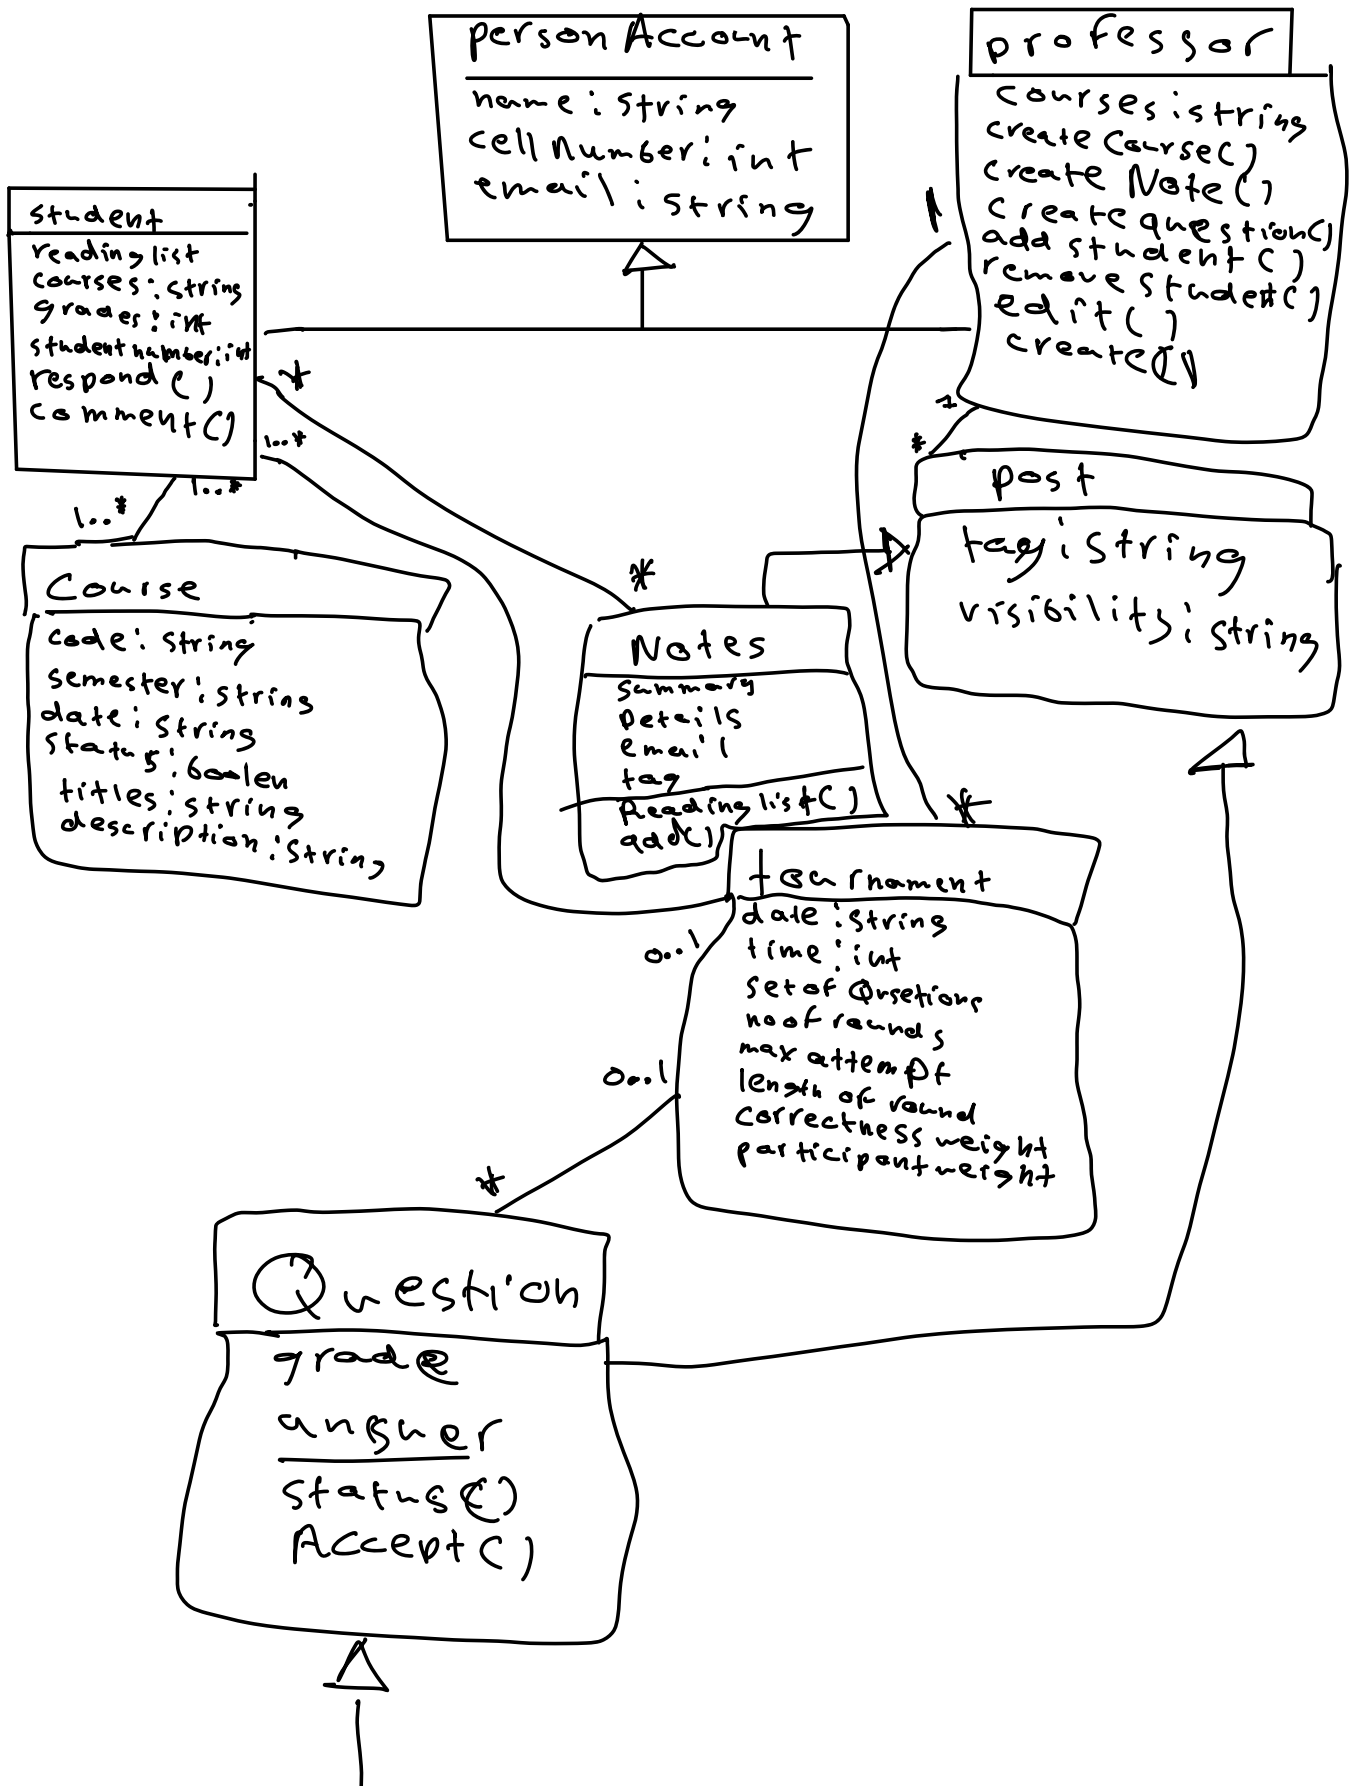 personAccount
name: string
cell number: int
email: string
professor
courses: string
create Course()
create Note()
create question()
add student()
remove student()
edit()
create()
1
student
reading list
courses: string
grades: int
student number: int
respond()
comment()
*
1..*
1..*
1..*
1
*
post
tag: string
visibility: string
Course
code: string
semester: string
date: string
status: boolen
titles: string
description: string
*
Notes
summary
Details
email
tag
Reading list()
add()
*
tournament
date: string
time: int
set of Qrsetions
no of rounds
max attempt
length of round
correctness weight
participant weight
0..1
0..1
*
Question
grade
answer
status()
Accept()